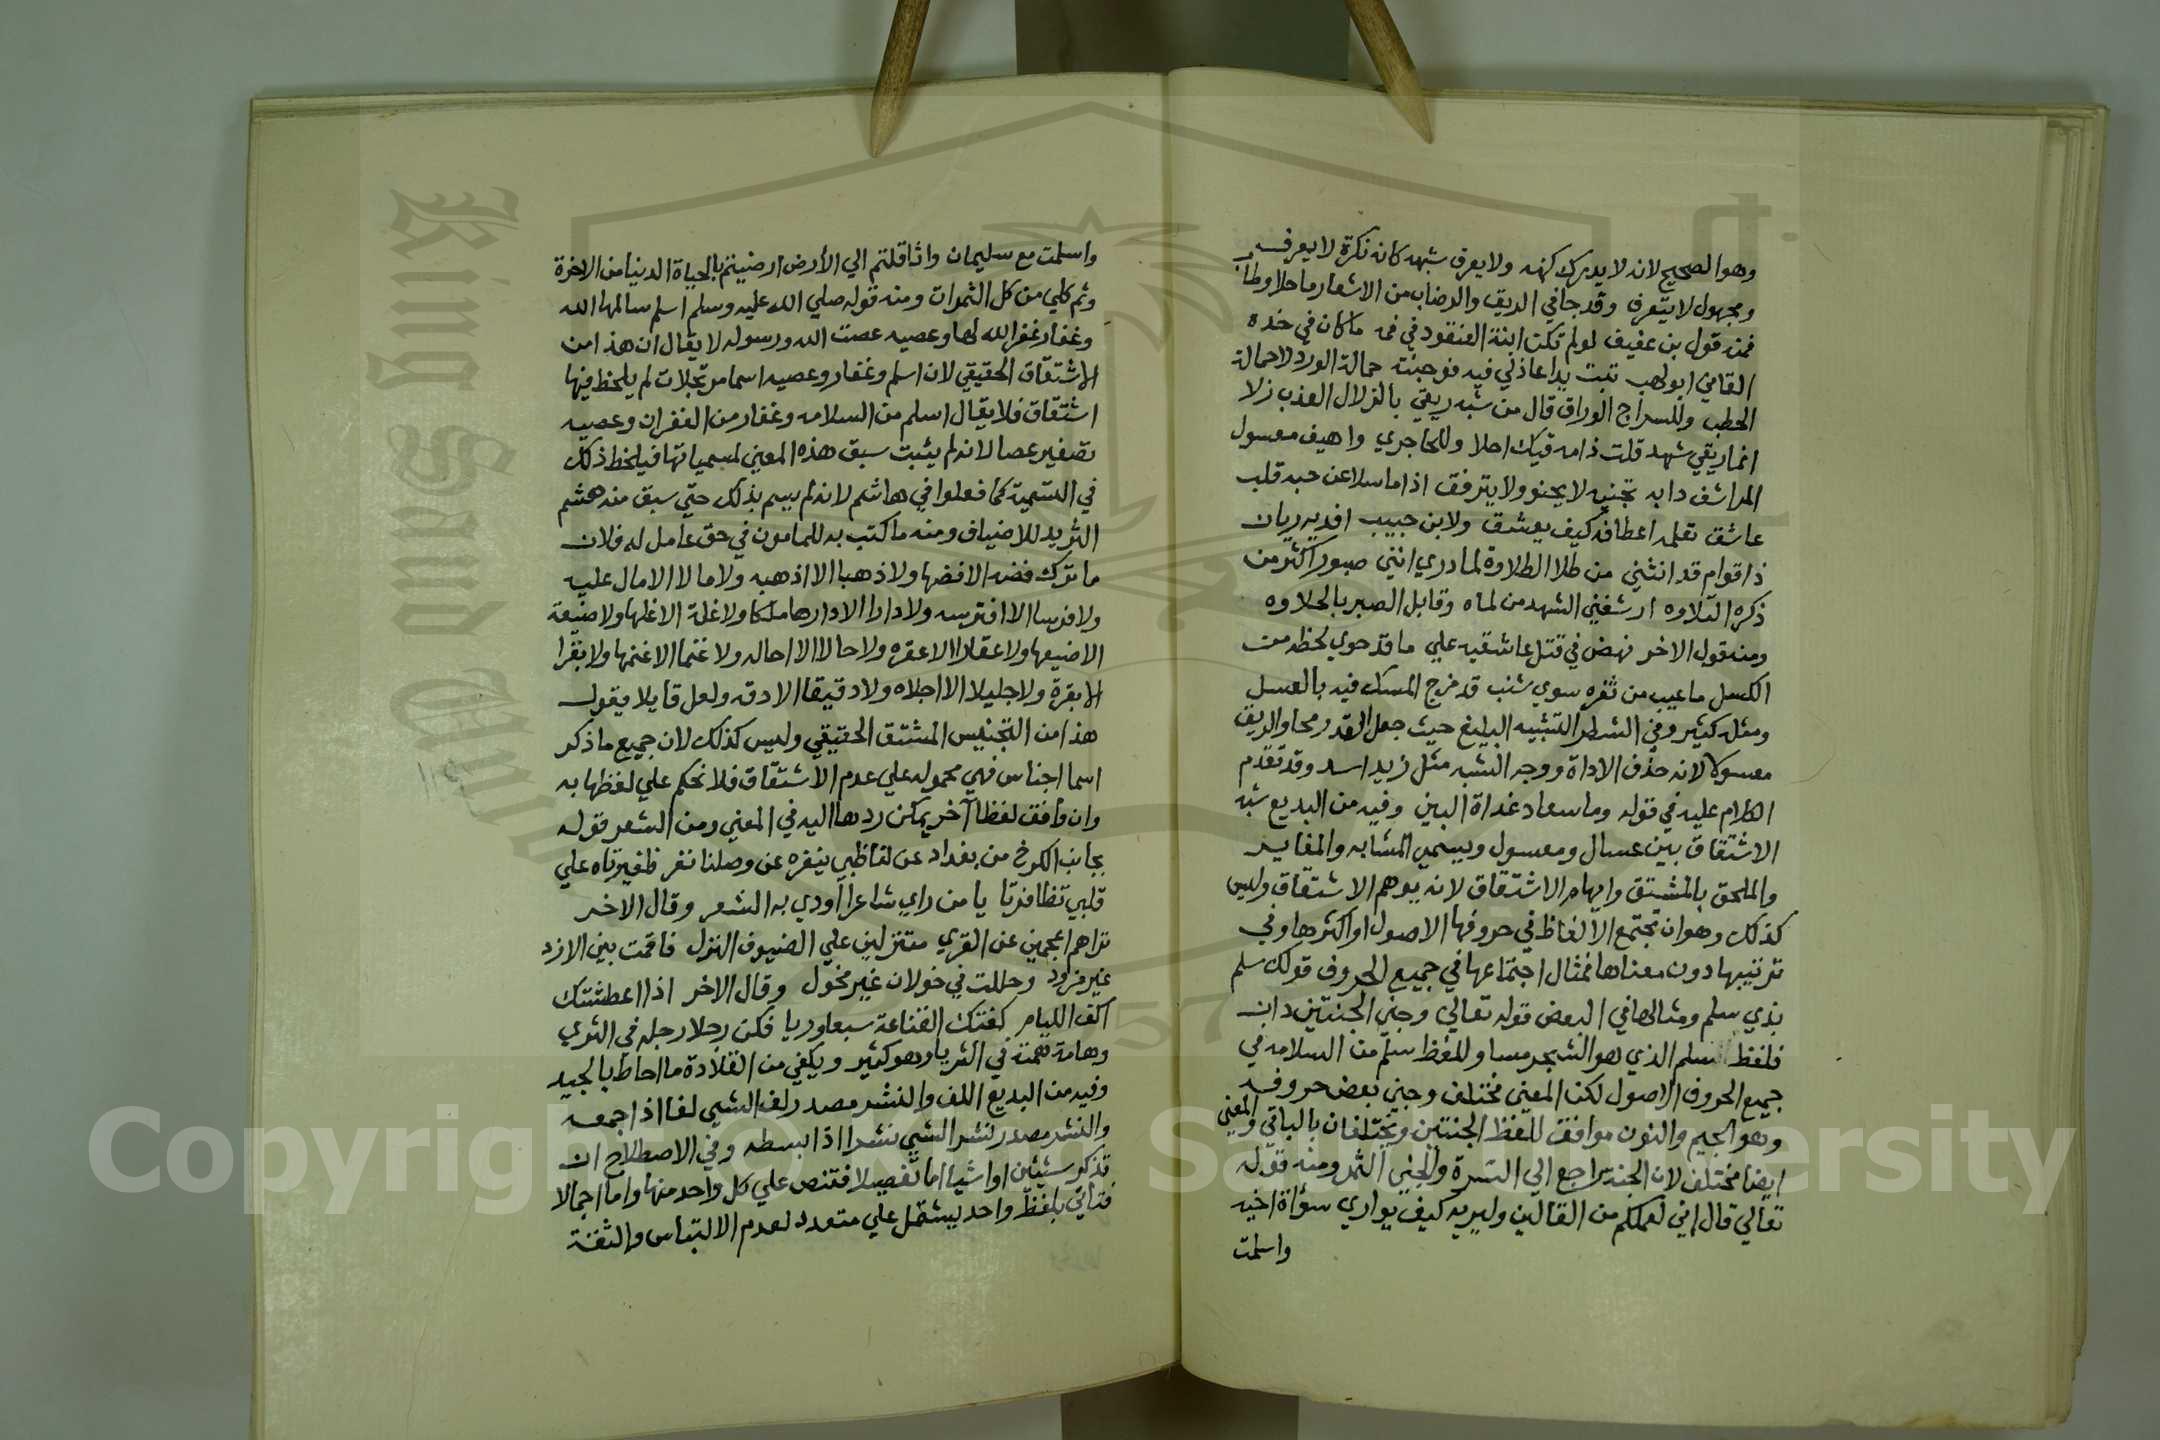 وهوا لصحيح لانه لا يدرك كنهه ولا يعرف شبهه كانه نكرة لا يعرف
ومجهول لا يتعرف وقد جا في الريق والرضاب من الاشعار ما حلا وطاب
فمنه قول بن عفيف لو لم تكن ابنة العنقود في فمه ما كان في خده
القاني ابو لهب تبت يدا عاذلي فيه فوجنته حمالة الورد لا حمالة
الحطب وللسراج الوراق قال من شبه ريقي بالزلال العذب زلا
انما ريقي شهد قلت ذامه فيك احلا وللحاجري واهيف معسول
المراشف دابه تجنيه لا يحنو ولا يترفق اذا ما سلا عن حبه قلب
عاشق تعلمه اعطافه كيف يعشق ولابن حبيب افديه ريان
ذا قوام قد انثني من طلا الطلاوة لما دري انني صبور اكثر من
ذكره التلاوه ارشفني الشهد من لماه وقابل الصبر بالحلاوه
ومنه قول الاخر نهض في قتل عاشقيه علي ما قد حوي لحظه من
الكسل ما عيب من ثغره سوي شنب قد مزج المسك فيه بالعسل
ومثله كثير وفي الشطر التشبيه البليغ حيث جعل القد رمحا والريق
معسولا لانه حذف الاداة ووجه الشبه مثل زيد اسد وقد تقدم
الكلام عليه في قوله وما سعاد غداة البين وفيه من البديع شبه
الاشتقاق بين عسال ومعسول ويسمي المشابه والمغاير
والملحق بالمشتق وايهام الاشتقاق لانه يوهم الاشتقاق وليس
كذلك وهو ان تجتمع الالفاظ في حروفها الاصول او اكثرها وفي
ترتيبها دون معناها فمثال اجتماعها في جميع الحروف قولك سلم
بذي سلم ومثالها في البعض قوله تعالي وجني الجنتين دان
فلفظ سلم الذي هو الشجر مساو للفظ سلم من السلامه في
جميع الحروف الاصول لكن المعني مختلف وجني بعض حروفه
وهو الجيم والنون موافق للفظ الجنتين ويختلفان بالباقي والمعني
ايضا مختلف لان الجنة راجع الي السترة والجني الثمر ومنه قوله
تعالي قال اني لعملكم من القالين وليريه كيف يواري سوأة اخيه
واسلمت
واسلمت مع سليمان واثاقلتم الي الأرض ارضيتم بالحياة الدنيا من الاخرة
وثم كلي من كل الثمرات ومنه قوله صلي الله عليه وسلم اسلم سالمها الله
وغفار غفر الله لها وعصيه عصت الله ورسوله لا يقال ان هذا من
الاشتقاق الحقيقي لان اسلم وغفار وعصيه اسما مرتجلات لم يلحظ فيها
اشتقاق فلا يقال اسلم من السلامه وغفار من الغفران وعصيه
تصغير عصا لانه لم يثبت سبق هذه المعني لمسمياتها فيلحظ ذلك
في التسمية كما فعلوا في هاشم لانه لم يسم بذلك حتي سبق منه هشم
الثريد للاضياف ومنه ما كتب به للمامون في حق عامل له فلان
ما ترك فضه الا فضها ولا ذهبا الا اذهبه ولا مالا الا مال عليه
ولا فرسا الا افترسه ولا دارا الا دارها ملكا ولا غلة الا غلها ولا ضيعة
الا ضيعها ولا عقارا الا عقره ولا حالا الا احاله ولا غنما الا غنمها ولا بقرا
الا بقرة ولا جليلا الا اجلاه ولا دقيقا الا دقه ولعل قايلا يقول
هذا من التجنيس المشتق الحقيقي وليس كذلك لان جميع ما ذكر
اسما اجناس فهي محموله علي عدم الاشتقاق فلا نحكم علي لفظها به
وان وافق لفظا آخر يمكن ردها اليه في المعني ومن الشعر قوله
بجانب الكرخ من بغداد عن لنا ظبي ينفره عن وصلنا نفر ظفيرتاه علي
قلبي تظافرتا يا من راي شاعرا أودي به الشعر وقال الاخر
تراهم اعجمين عن القري متنزلين علي الضيوف النزل فاقمت بين الازد
غير مزود وحللت في خولان غير مخول وقال الاخر اذا اعطشتك
اكف الليام كفتك القناعة سبعا وريا فكن رجلا رجله في الثري
وهامة همته في الثريا وهو كثير ويكفي من القلادة ما احاط بالجيد
وفيه من البديع اللف والنشر مصدر لف الشيي لفا اذا جمعه
والنشر مصدر نشر الشيي نشرا اذا بسطه وفي الاصطلاح ان
تذكر شيئين او اشيا اما تفصيلا فتنص علي كل واحد منها واما اجمالا
فتأتي بلفظ واحد يشتمل علي متعدد لعدم الالتباس والثقة
Copyright © King Saud University
King Saud Univ
57